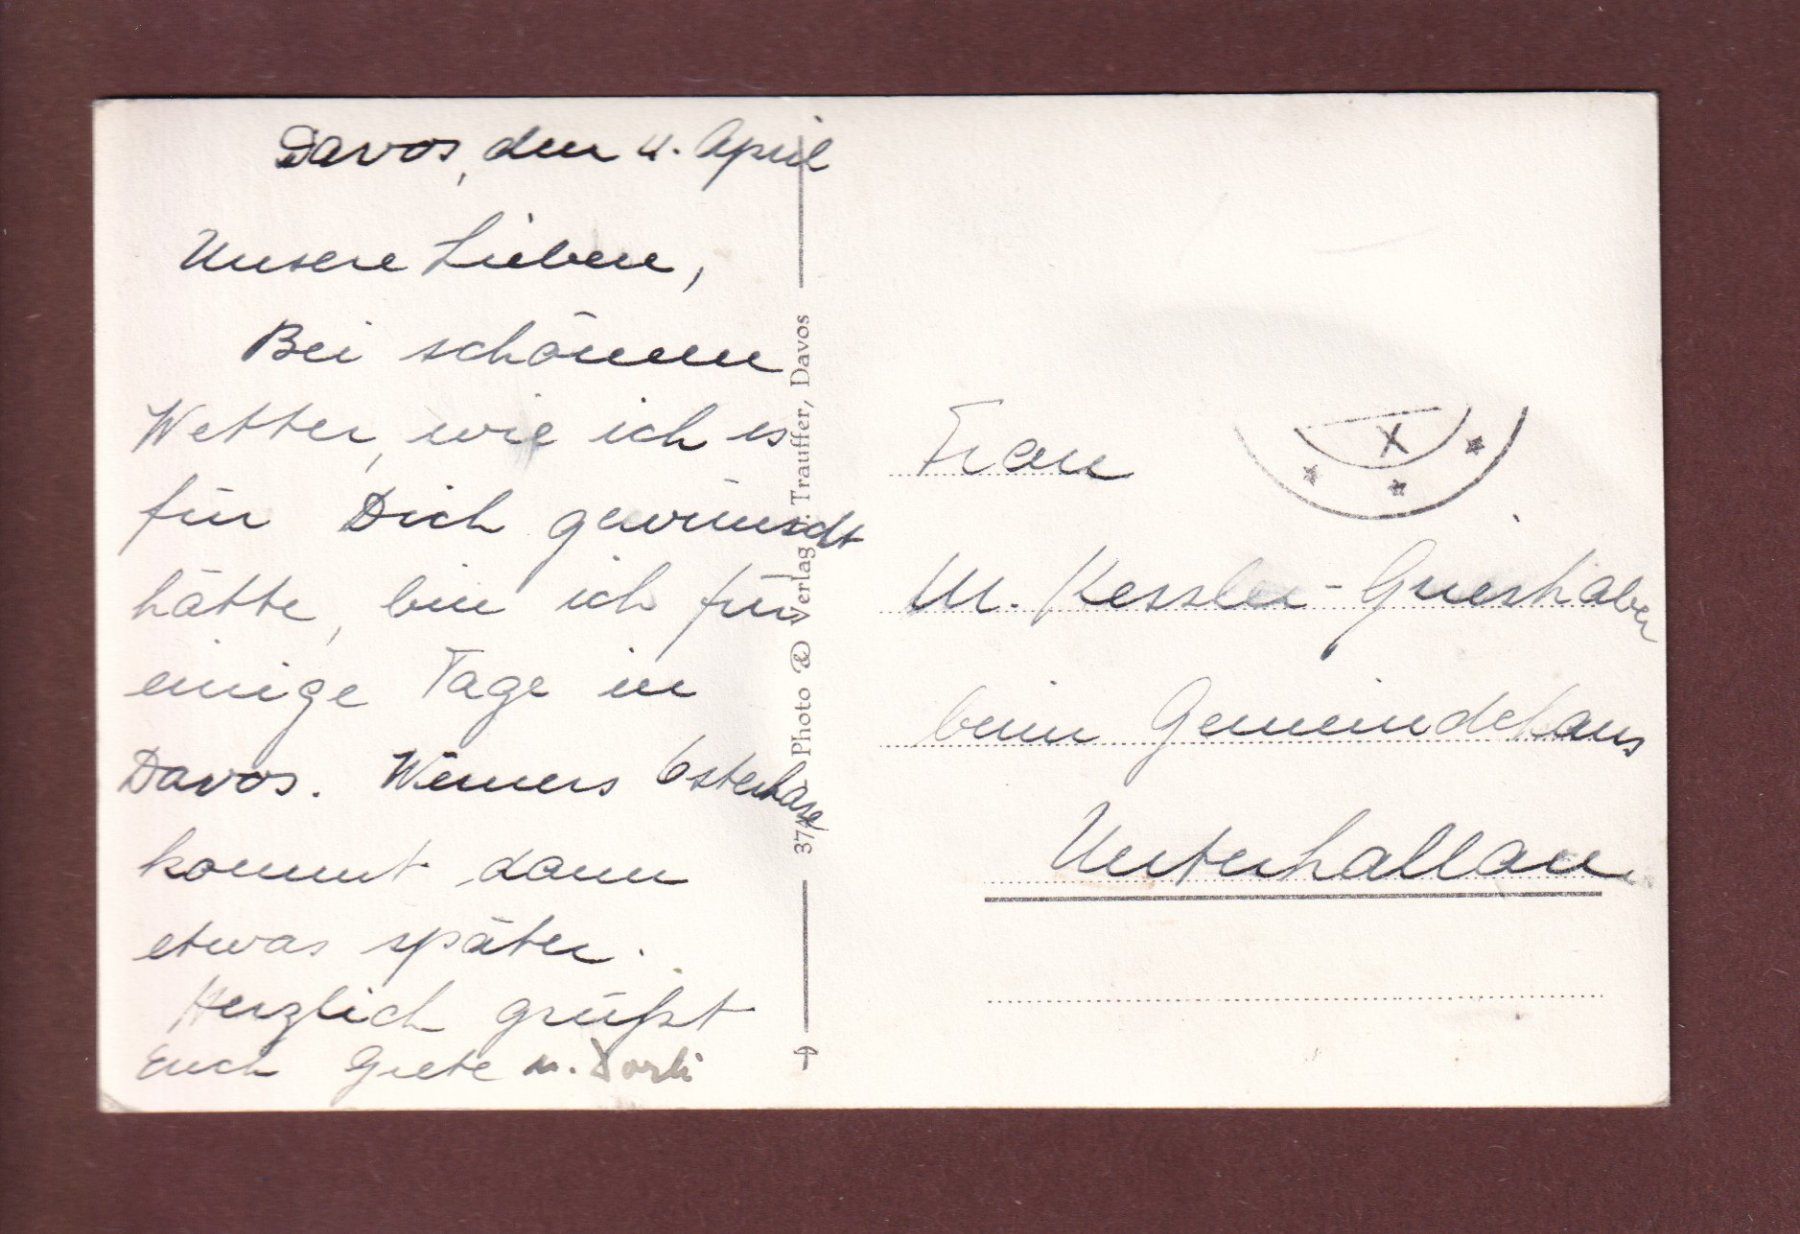 Davos, den 4. April
Unsere Lieben,
Bei schönem
Wetter, wie ich es
für Dich gewünscht
hätte, bin ich für
einige Tage in
Davos. Werners Osterhase
kommt dann
etwas später.
Herzlich grüßt
Euch Grete u. Dorli
37 Photo & Verlag Trauffer, Davos
X
Frau
M. Kessler-Grieshaber
beim Gemeindehaus
Unterhallau